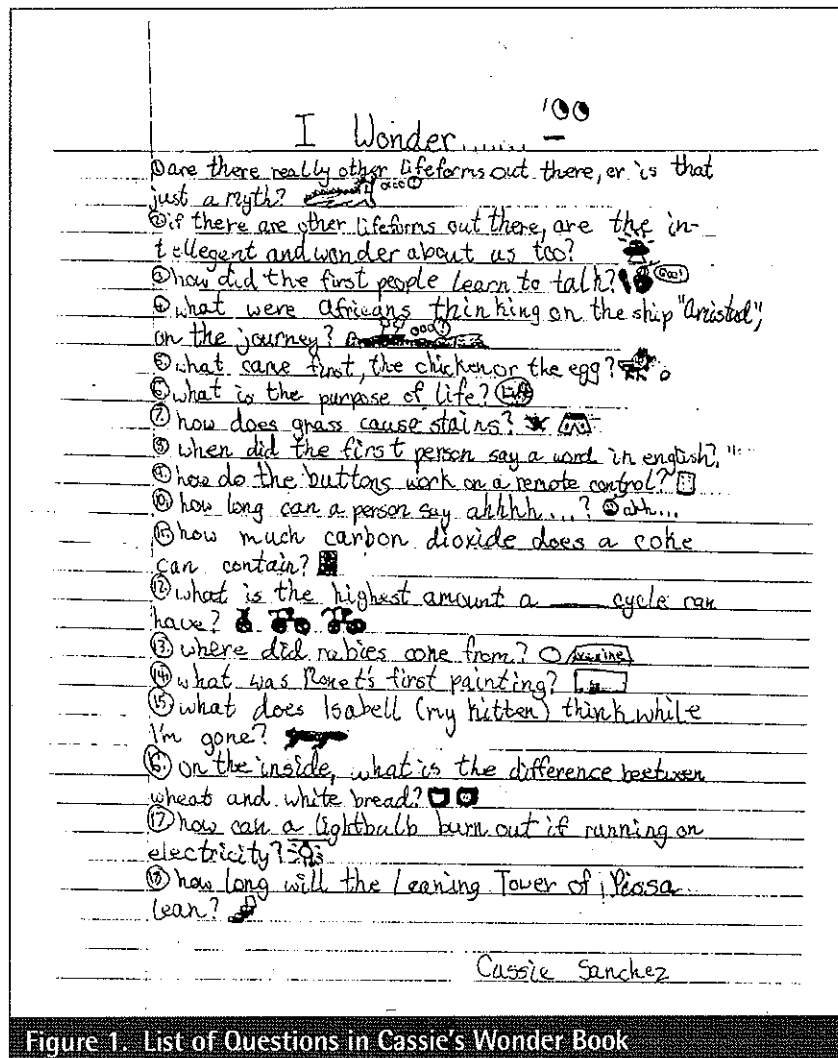 I Wonder.......
① are there really other lifeforms out there, or is that
just a myth?
② if there are other lifeforms out there, are the in-
tellegent and wonder about us too?
③ how did the first people learn to talk?
④ what were Africans thinking on the ship "Amistad",
on the journey?
⑤ what came first, the chicken or the egg?
⑥ what is the purpose of life? Life
⑦ how does grass cause stains?
⑧ when did the first person say a word in english?
⑨ how do the buttons work on a remote control?
⑩ how long can a person say ahhhh...? ahh...
⑪ how much carbon dioxide does a coke
can contain?
⑫ what is the highest amount a ____ cycle can
have?
⑬ where did rabies come from?
⑭ what was Monet's first painting?
⑮ what does Isabell (my kitten) think while
I'm gone?
⑯ on the inside, what is the difference beetween
wheat and white bread?
⑰ how can a lightbulb burn out if running on
electricity?
⑱ how long will the Leaning Tower of
lean?
Cassie Sanchez
Figure 1. List of Questions in Cassie's Wonder Book